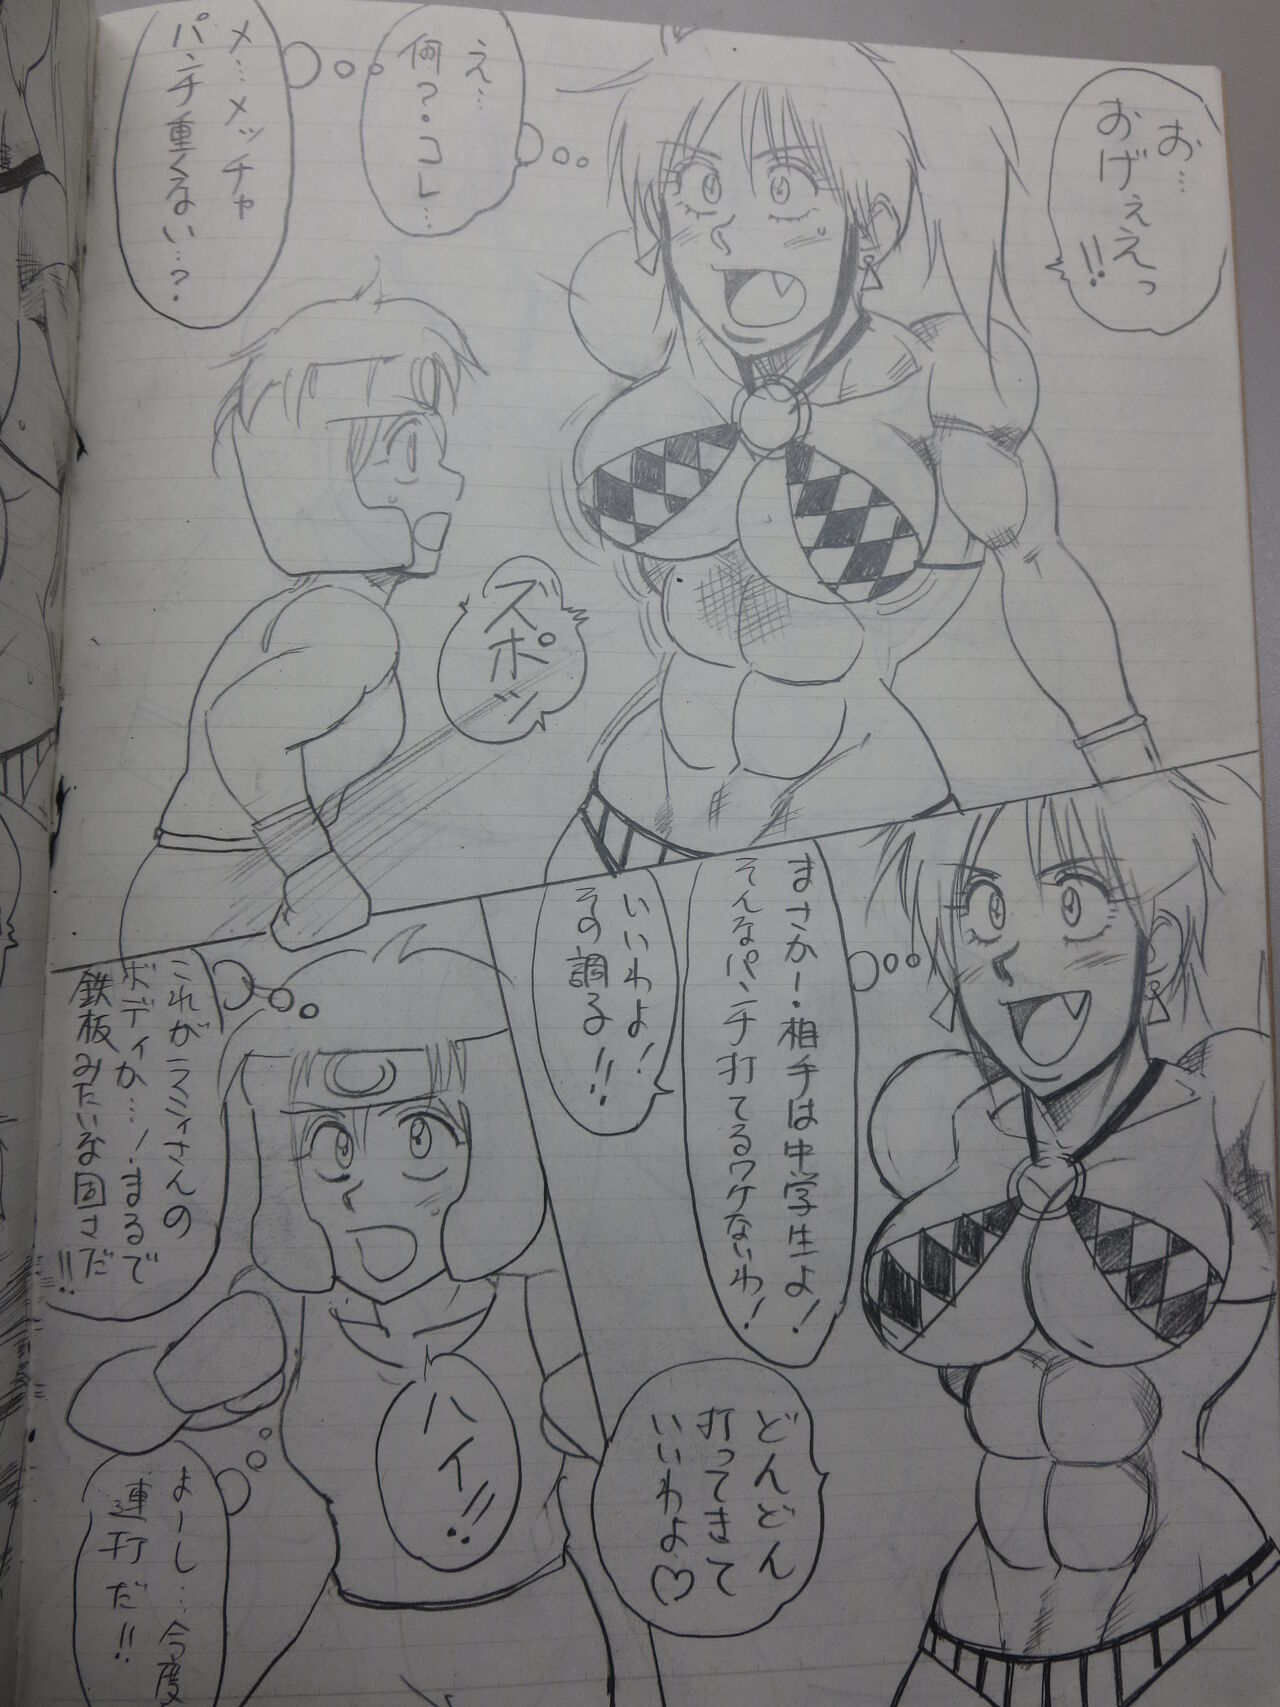 お…
おげぇえっ
!!
え…
何?コレ…
メ…メッチャ
パンチ重くない…?
ズポッ
まさかー・相手は中学生よ!
そんなパンチ打てるワケないわ!
いいわよ!
その調子!!
どんどん
打ってきて
いいわよ♡
これがラミィさんの
ボディか…!まるで
鉄板みたいな固さだ
!!
ハイ!!
よーし…今度
連打だ!!